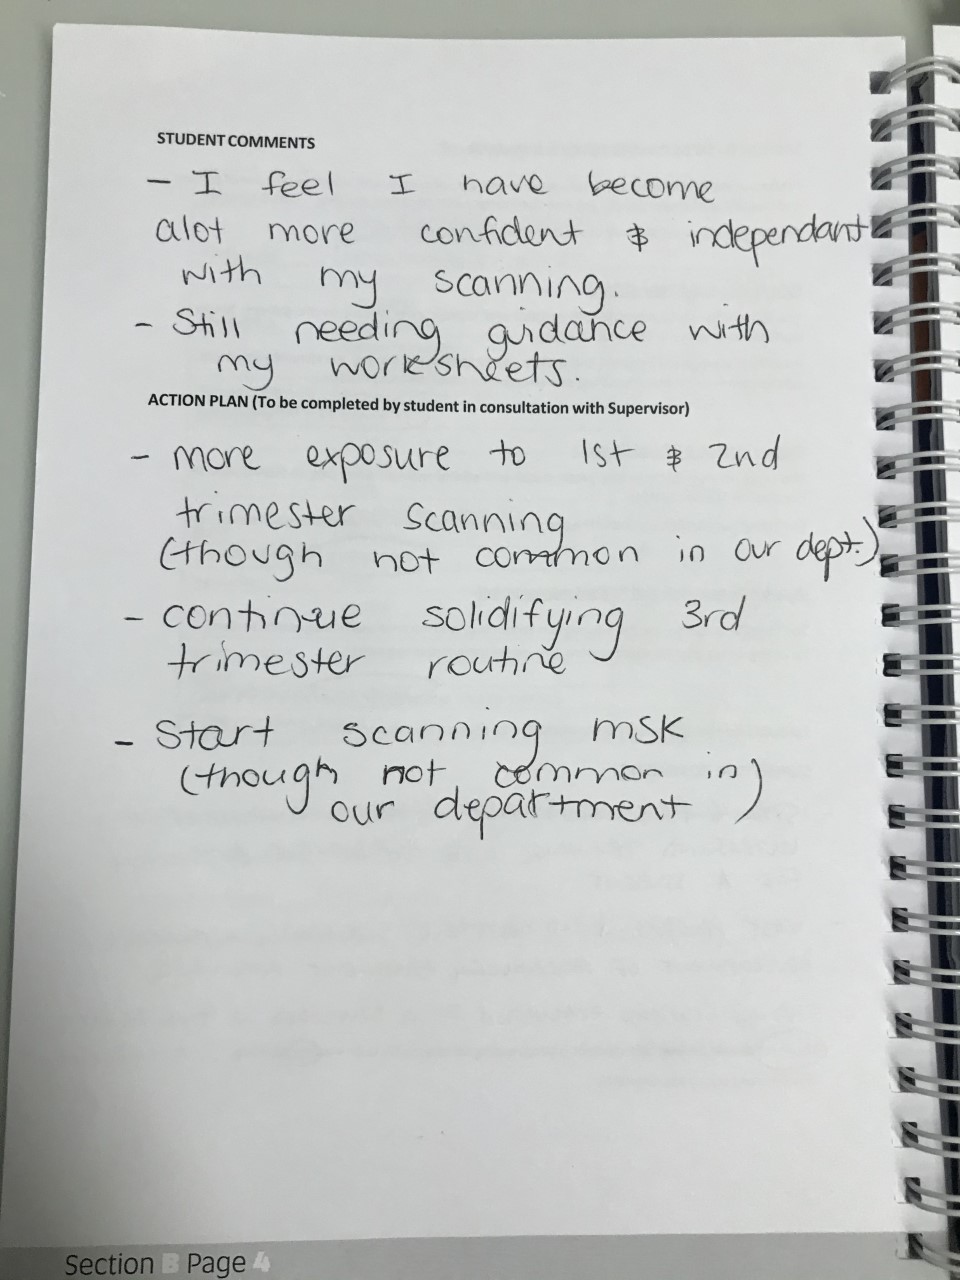 STUDENT COMMENTS
- I feel I have become
alot more confident & independant
with my scanning.
- Still needing guidance with
my worksheets.
ACTION PLAN (To be completed by student in consultation with Supervisor)
- more exposure to 1st & 2nd
trimester scanning
(though not common in our dept.)
- continue solidifying 3rd
trimester routine
- Start scanning msk
(though not common in)
our department
Section B Page 4